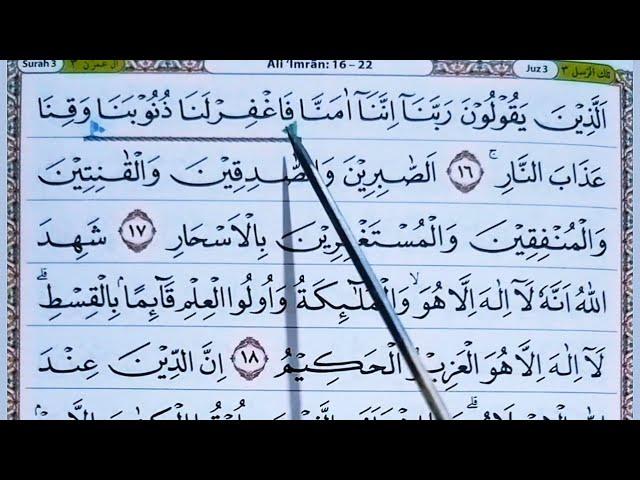 Surah 3 اٰل عمرٰن ٣ Ali 'Imrān: 16 – 22 Juz 3 تلك الرسل ٣
اَلَّذِيْنَ يَقُوْلُوْنَ رَبَّنَآ اِنَّنَآ اٰمَنَّا فَاغْفِرْ لَنَا ذُنُوْبَنَا وَقِنَا
عَذَابَ النَّارِۚ ١٦ اَلصّٰبِرِيْنَ وَالصّٰدِقِيْنَ وَالْقٰنِتِيْنَ
وَالْمُنْفِقِيْنَ وَالْمُسْتَغْفِرِيْنَ بِالْاَسْحَارِ ١٧ شَهِدَ
اللّٰهُ اَنَّهٗ لَآ اِلٰهَ اِلَّا هُوَۙ وَالْمَلٰۤىِٕكَةُ وَاُولُوا الْعِلْمِ قَاۤىِٕمًاۢ بِالْقِسْطِۗ
لَآ اِلٰهَ اِلَّا هُوَ الْعَزِيْزُ الْحَكِيْمُ ١٨ اِنَّ الدِّيْنَ عِنْدَ